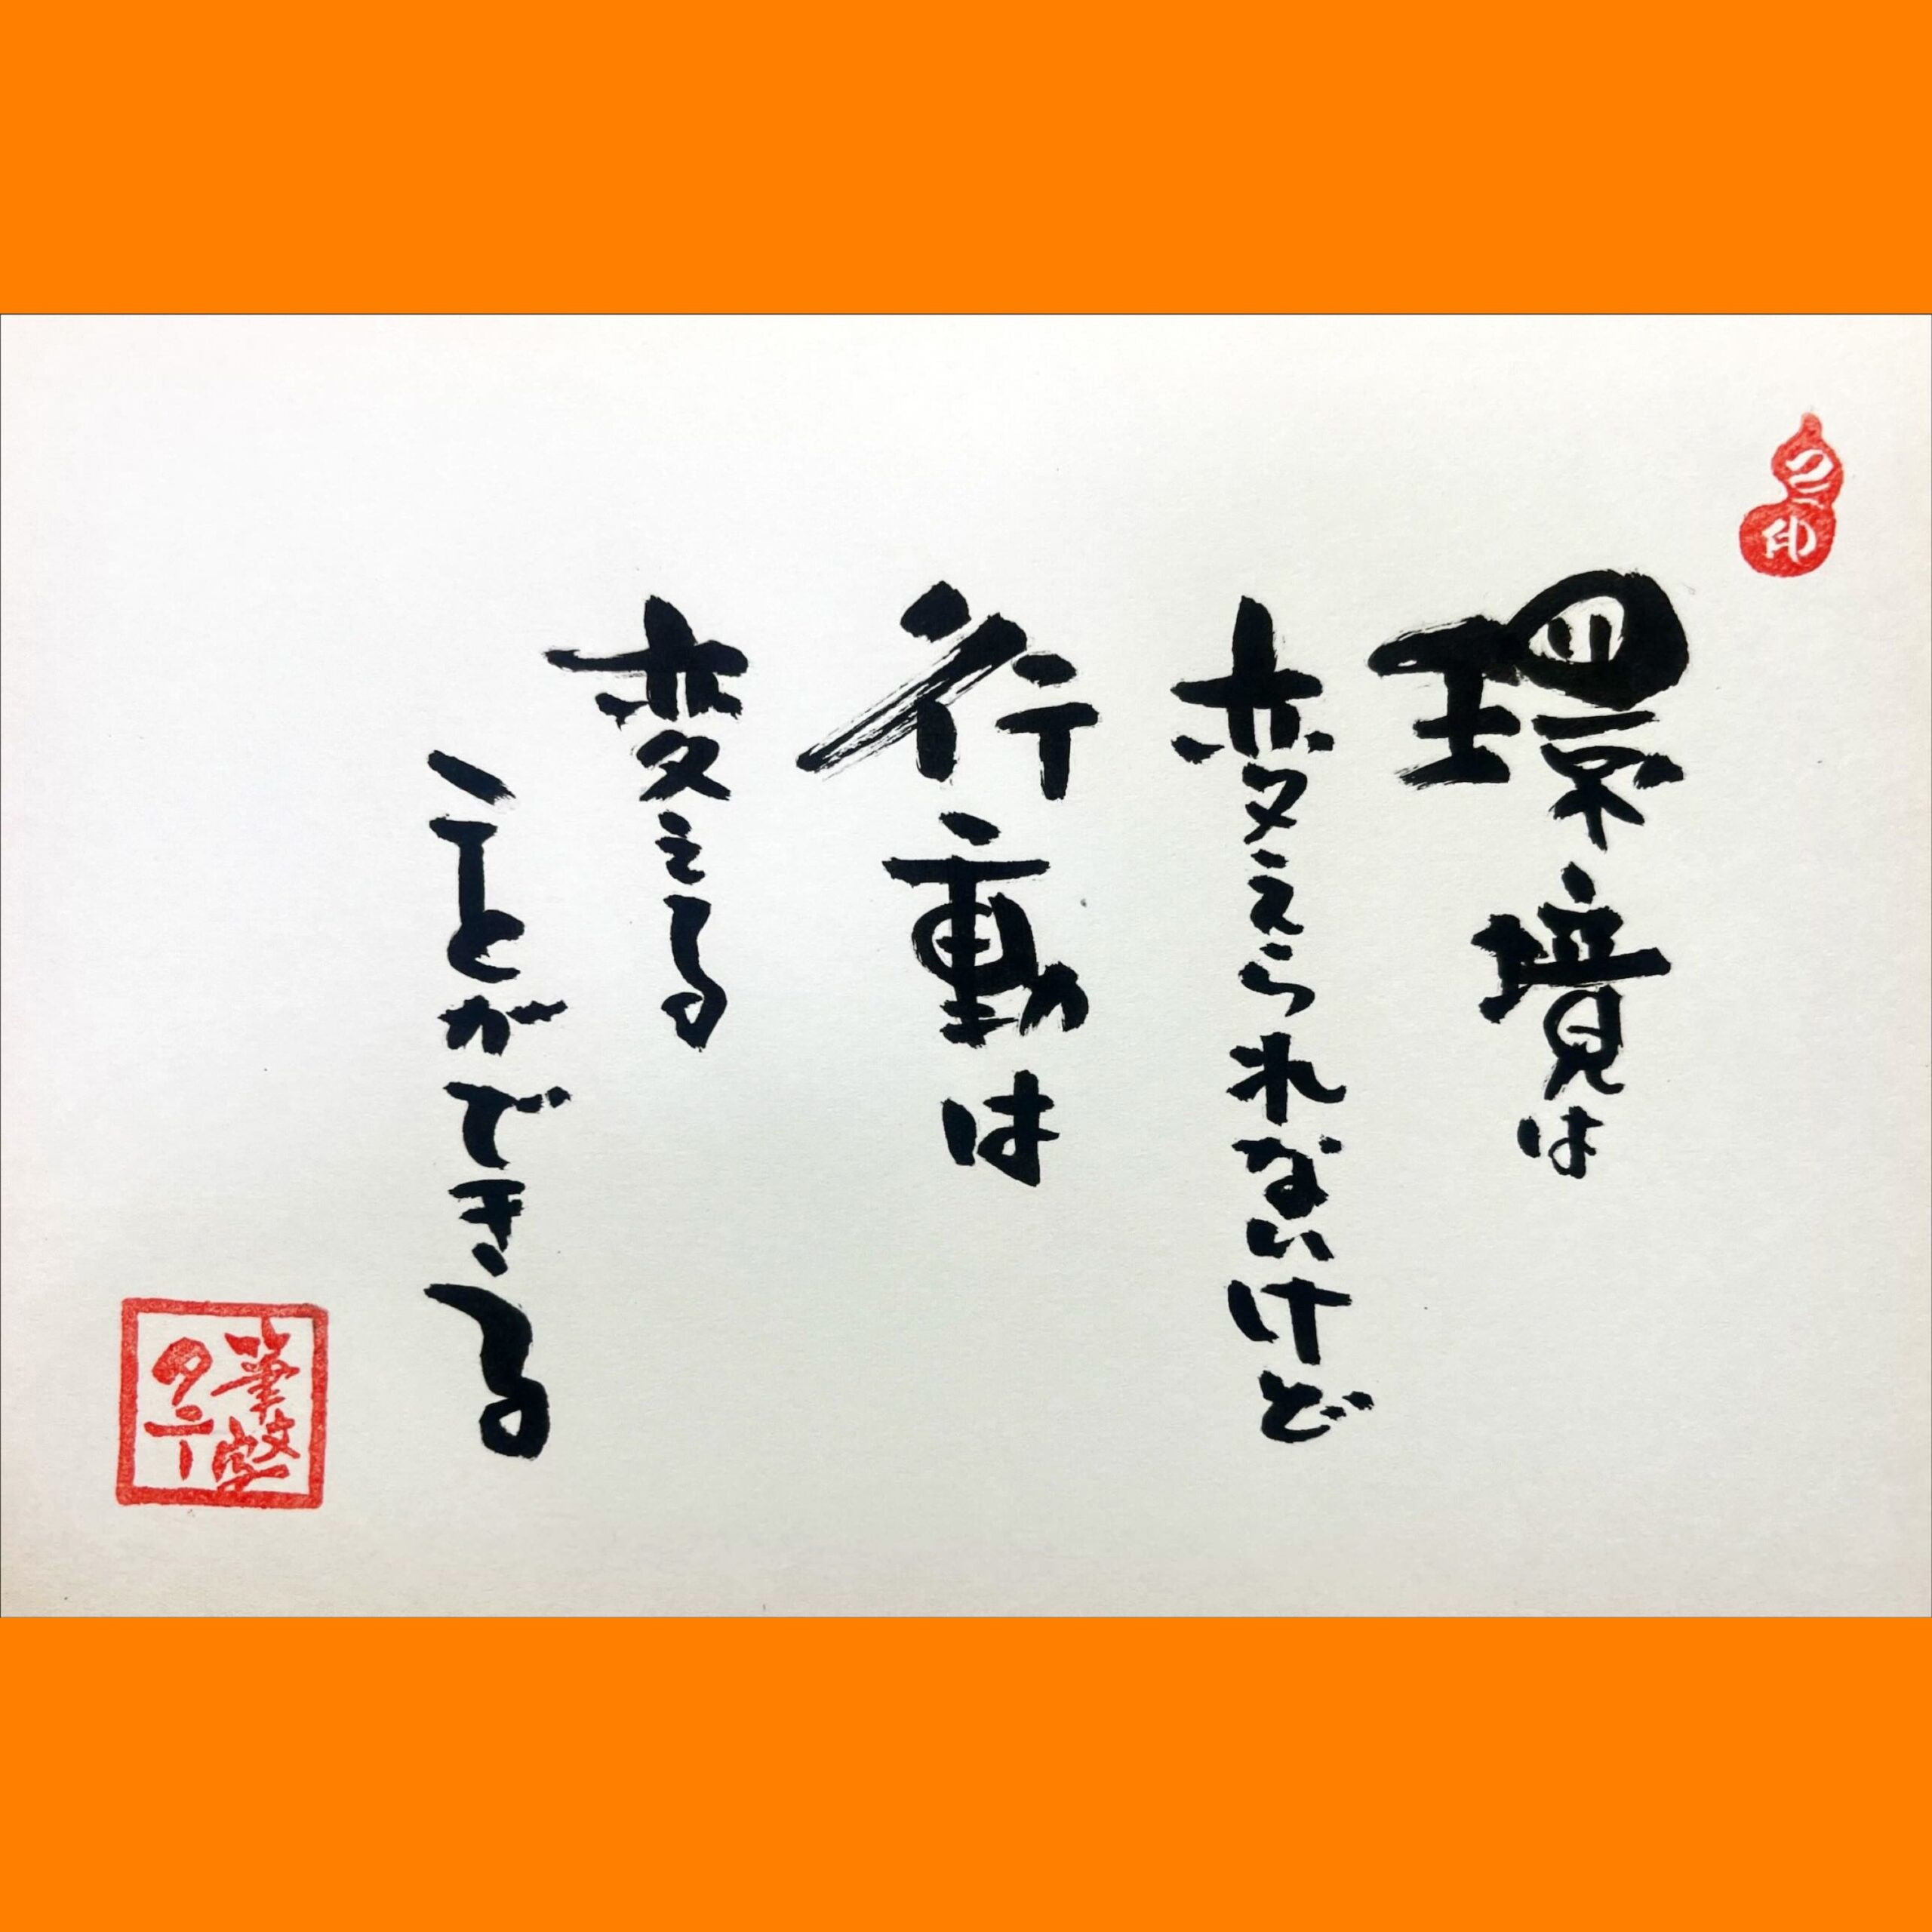 環境は
変えられないけど
行動は
変える
ことができる
筆文字
タニー